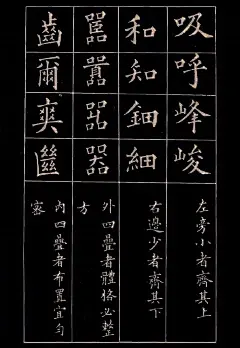 吸呼峰峻
左旁小者齊其上
和知鈿細
右邊少者齊其下
嚚囂器
外四疊者體格必整方
齒爾爽
內四疊者布置宜勻密